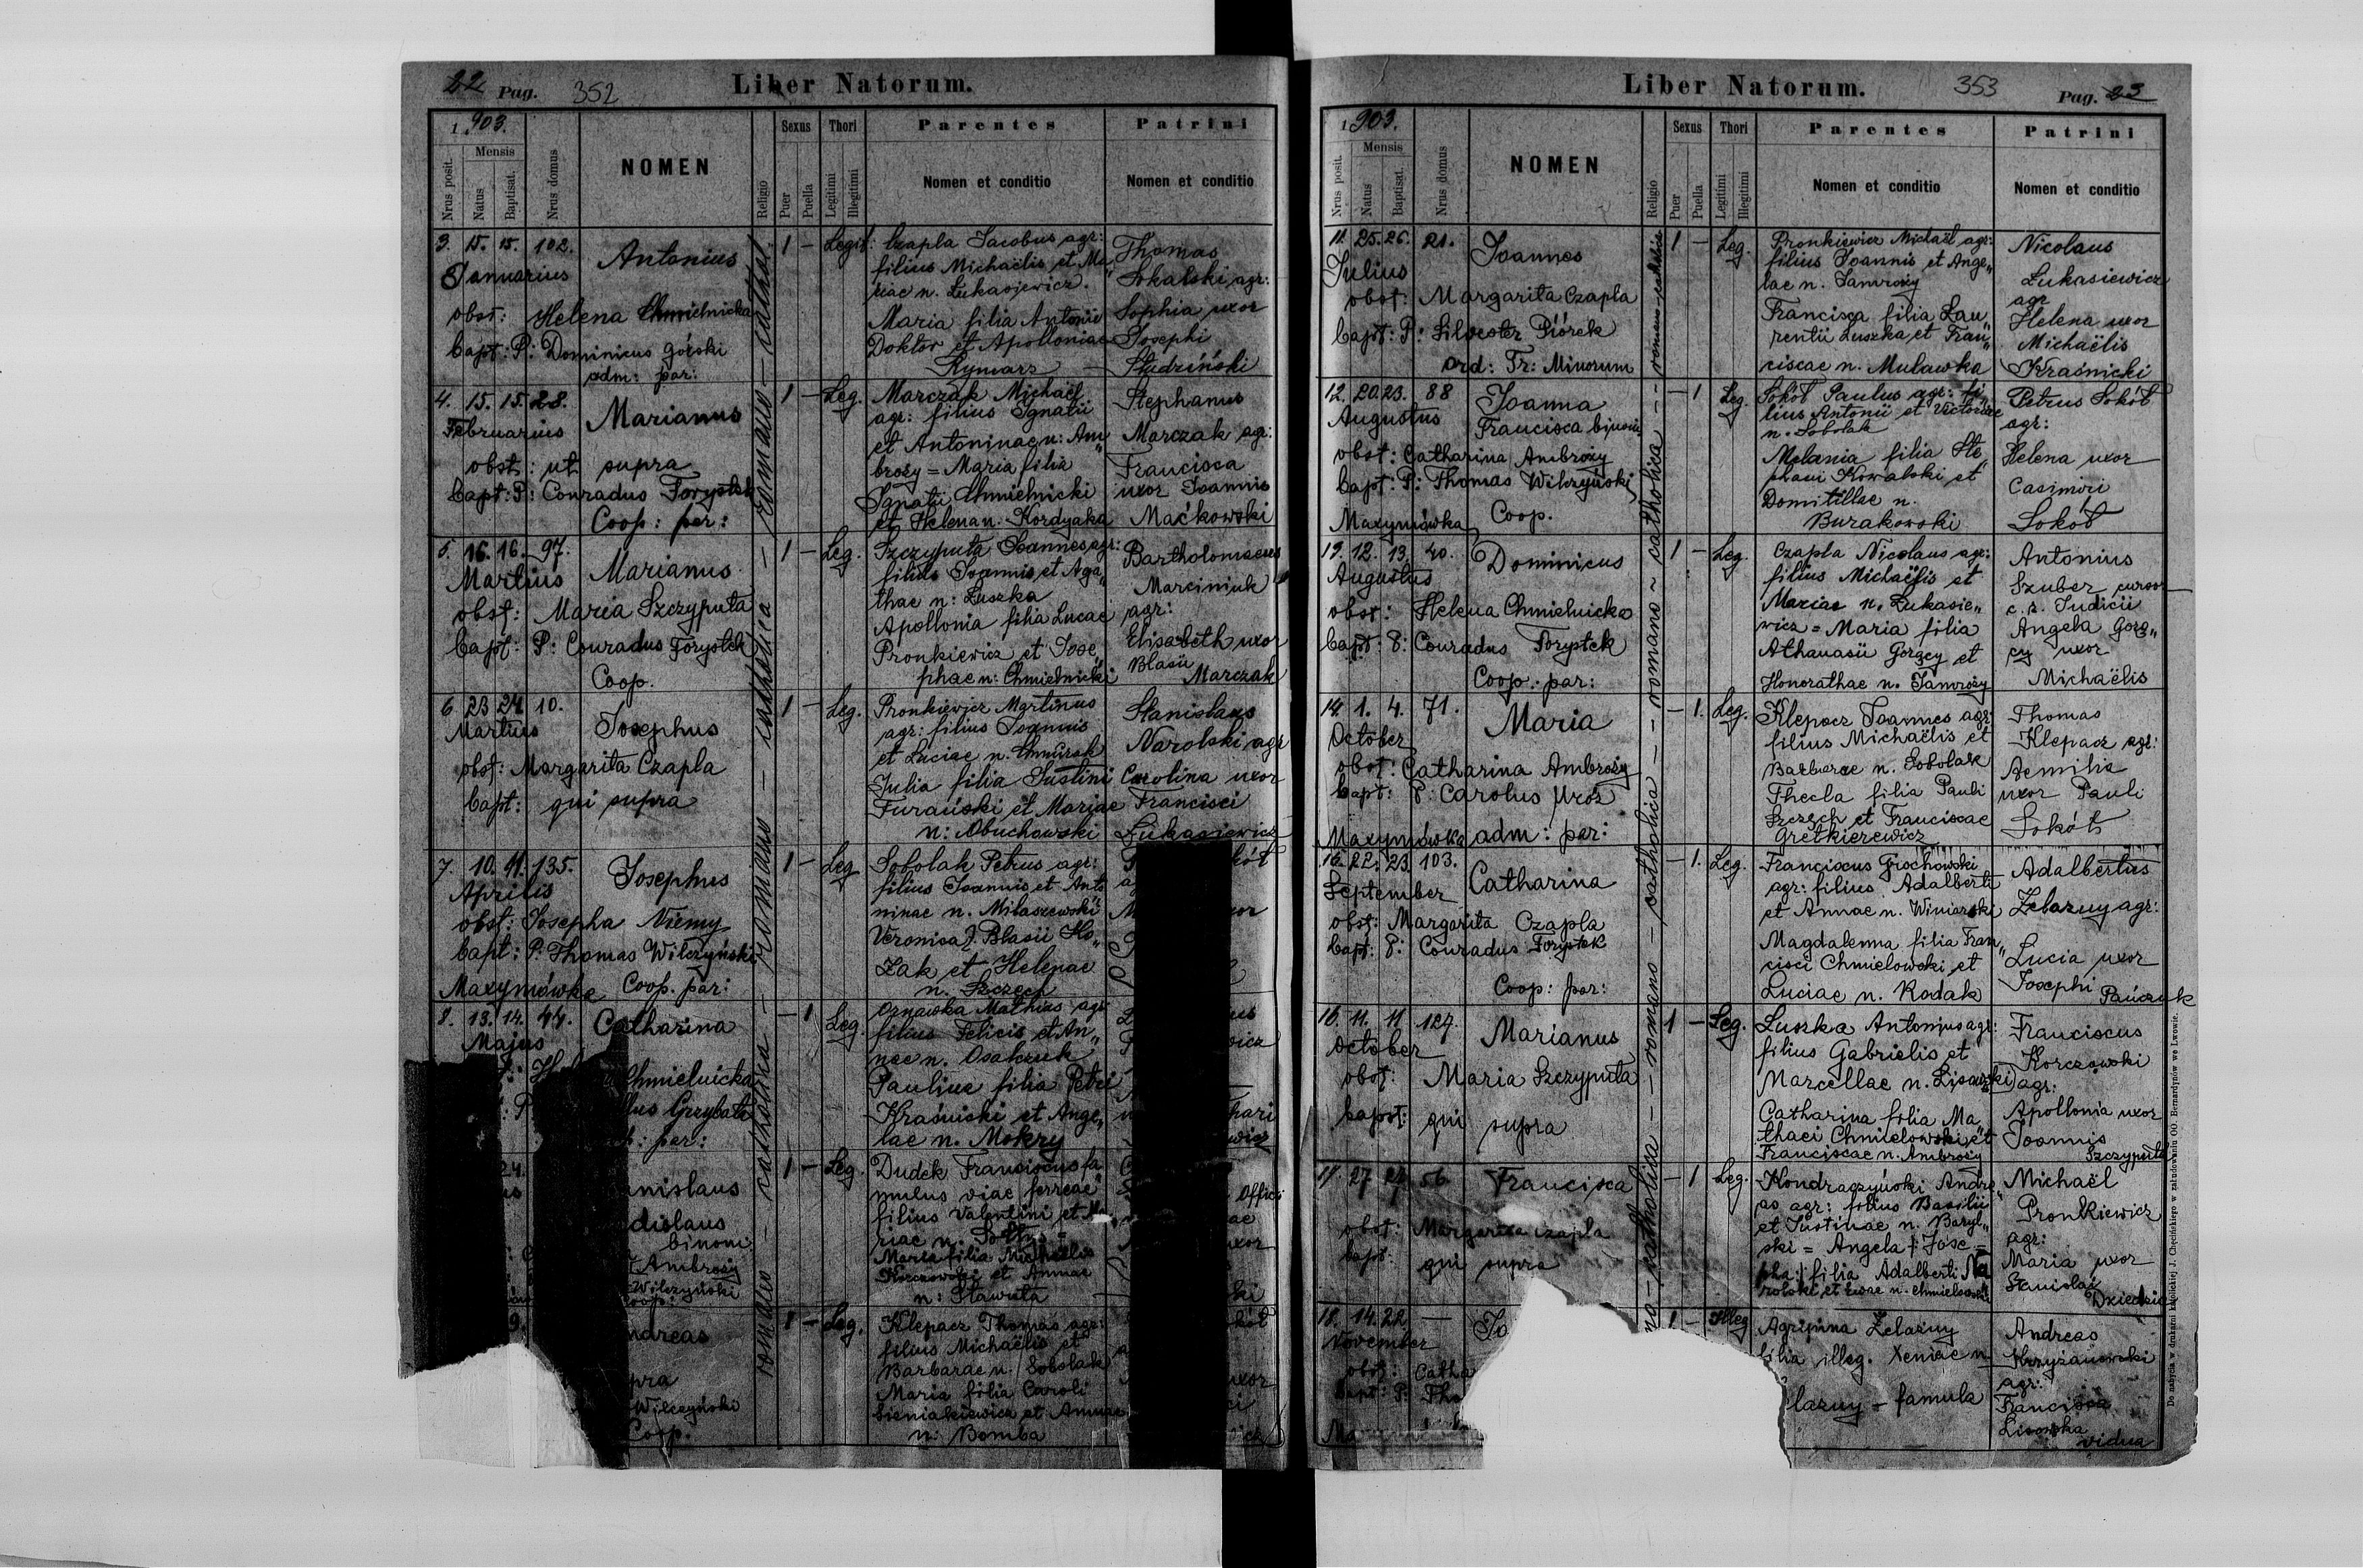 22 Pag. 352 Liber Natorum.
1903.
Nrus posit.
Mensis
Natus
Baptisat.
Nrus domus
NOMEN
Religio
Sexus
Puer
Puella
Thori
Legitimi
Illegitimi
Parentes
Nomen et conditio
Patrini
Nomen et conditio
romano - catholica - romano - catholica - romano - cathol.
3. 15. 15. 102.
Januarius
Antonius
obst: Helena Chmielnicka
bapt: P: Dominicus Górski
adm: par:
1 - Legit:
Czapla Jacobus agr:
filius Michaëlis et Ma„
riae n. Łukasiewicz.
Maria filia Antonii
Doktor et Apolloniae
Rymarz
Thomas
Sokalski agr:
Sophia uxor
Josephi
Studziński
4. 15. 15. 28.
Februarius
Marianus
obst: ut supra
bapt: P: Conradus Forystek
Coop: par:
1 - Leg.
Marczak Michaël
agr: filius Ignatii
et Antoninae n: Am„
broży = Maria filia
Ignatii Chmielnicki
et Helena n. Kordyaka
Stephanus
Marczak agr:
Francisca
uxor Joannis
Maćkowski
5. 16. 16. 97.
Martius
Marianus
obst: Maria Szczyputa
bapt: P: Conradus Forystek
Coop.
1 - Leg.
Szczyputa Joannes agr:
filius Joannis et Aga„
thae n: Łuszka
Apollonia filia Lucae
Pronkiewicz et Jose„
phae n: Chmielnicki
Bartholomaeus
Marciniuk
agr:
Elisabeth uxor
Blasii
Marczak
6 23 24 10.
Martius
Josephus
obst: Margarita Czapla
bapt: qui supra
1 - Leg.
Pronkiewicz Martinus
agr: filius Joannis
et Luciae n. Chmurak
Julia filia Justini
Furański et Mariae
n: Obuchowski
Stanislaus
Narolski agr
Carolina uxor
Francisci
Łukasiewicz
7. 10. 11. 135.
Aprilis
Josephus
obst: Josepha Niemy
bapt: P. Thomas Wilczyński
Maxymówka Coop. par:
1 - Leg
Sobolak Petrus agr:
filius Joannis et Anto
ninae n. Milaszewski
Veronica f. Blasii Ko„
zak et Helenae
n. Szczech
8. 13. 14. 44.
Majus
Catharina
Chmielnicka
Grzybata
par:
- 1 Leg.
Oznawka Mathias agr
filius Felicis et An„
nae n. Osatczuk
Paulina filia Petri
Kraśnicki et Ange„
lae n. Mokry
24.
nislaus
dislaus
binom:
Ambroży
Wilczyński
Coop:
1 - Leg.
Dudek Franciscus fa
mulus viae ferreae
filius Valentini et Ma
riae n. Sołtys =
Maria filia Michaëlis
Korczowski et Annae
n: Stawuta
Offici
uxor
9.
ndreas
pra
Wilczyński
Coop.
1 - Leg.
Klepacz Thomas agr:
filius Michaëlis et
Barbarae n. Sobolak
Maria filia Caroli
Sieniakiewicz et Annae
n. Bomba
uxor
Liber Natorum. 353 Pag. 23
1903.
Nrus posit.
Mensis
Natus
Baptisat.
Nrus domus
NOMEN
Religio
Sexus
Puer
Puella
Thori
Legitimi
Illegitimi
Parentes
Nomen et conditio
Patrini
Nomen et conditio
no - catholica - romano - catholica - romano - catholica - romano-catholica
11. 25. 26. 21.
Julius
Joannes
obst: Margarita Czapla
bapt: P: Silvester Piórek
ord: Fr: Minorum
1 - Leg.
Pronkiewicz Michaël agr:
filius Joannis et Ange„
lae n. Jamroży
Francisca filia Lau„
rentii Łuszka et Fran„
ciscae n. Muławka
Nicolaus
Łukasiewicz
agr
Helena uxor
Michaëlis
Kraśnicki
12. 20. 23. 88
Augustus
Joanna
Francisca binom:
obst: Catharina Ambroży
bapt: P: Thomas Wilczyński
Maxymówka Coop.
- 1 Leg.
Sokół Paulus agr: fi„
lius Antonii et Victoriae
n. Sobolak
Melania filia Ste„
phani Kowalski et
Domitillae n.
Burakowski
Petrus Sokół
agr:
Helena uxor
Casimiri
Sokół
13. 12. 13. 40.
Augustus
Dominicus
obst: Helena Chmielnicka
bapt: P: Conradus Forystek
Coop. par:
1 - Leg.
Czapla Nicolaus agr:
filius Michaëlis et
Mariae n. Łukasie„
wicz = Maria filia
Athanasii Gorący et
Honorathae n. Jamroży
Antonius
Szuber cursor
c. r. Judicii
Angela Gorą„
cy uxor
Michaëlis
14. 1. 4. 71.
October
Maria
obst: Catharina Ambroży
bapt: P: Carolus Mroż
Maxymówka adm: par:
- 1. Leg.
Klepacz Joannes agr:
filius Michaëlis et
Barbarae n. Sobolak
Thecla filia Pauli
Szczech et Franciscae
Gretkierewicz
Thomas
Klepacz agr:
Aemilia
uxor Pauli
Sokół
15. 22. 23. 103.
September
Catharina
obst: Margarita Czapla
bapt: P: Conradus Forystek
Coop: par:
- 1. Leg.
Franciscus Grochowski
agr: filius Adalberti
et Annae n. Winiarski
Magdalenna filia Fran„
cisci Chmielowski et
Luciae n. Kodak
Adalbertus
Żelazny agr:
Lucia uxor
Josephi
Pańczuk
16. 11. 11 127.
October
Marianus
obst: Maria Szczyputa
bapt: qui supra
1 - Leg.
Łuszka Antonius agr:
filius Gabrielis et
Marcellae n. Lisowski
Catharina filia Ma„
thaei Chmielowski et
Franciscae n. Ambroży
Franciscus
Korczowski
agr:
Apollonia uxor
Joannis
Szczyputa
17. 27. 27. 56.
Francisca
obst: Margarita Czapla
bapt: qui supra
- 1 Leg.
Kondraczyński Andre„
as agr: filius Basilii
et Justinae n. Baryl„
ski = Angela /: Jose =
pha :/ filia Adalberti Na
rolski et Evae n. Chmielowski
Michaël
Pronkiewicz
agr:
Maria uxor
Stanislai
Dziedzic
18. 14. 22. —
November
Jo
obst: Catha
bapt: P: Tho
Ma
1 - Illeg
Agripina Żelazny
filia illeg. Xeniae n
lazny = famula
Andreas
Krzyżanowski
agr:
Francisca
Lisowska
vidua
Do nabycia w drukarni katolickiej J. Chęcińskiego w zabudowaniu OO. Bernardynów we Lwowie.